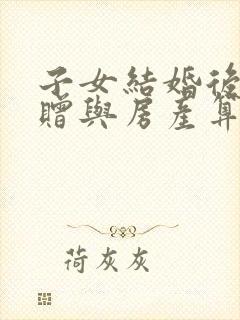 子女結婚後
贈與房產算
荷灰灰